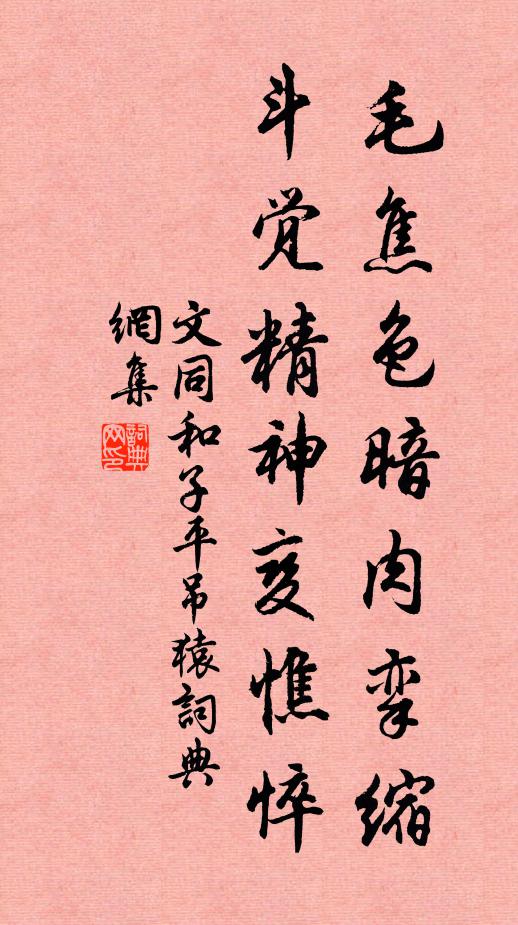 毛焦色暗肉挛缩
斗觉精神变憔悴
文同和子平吊猿詞典
網集
詞典网印